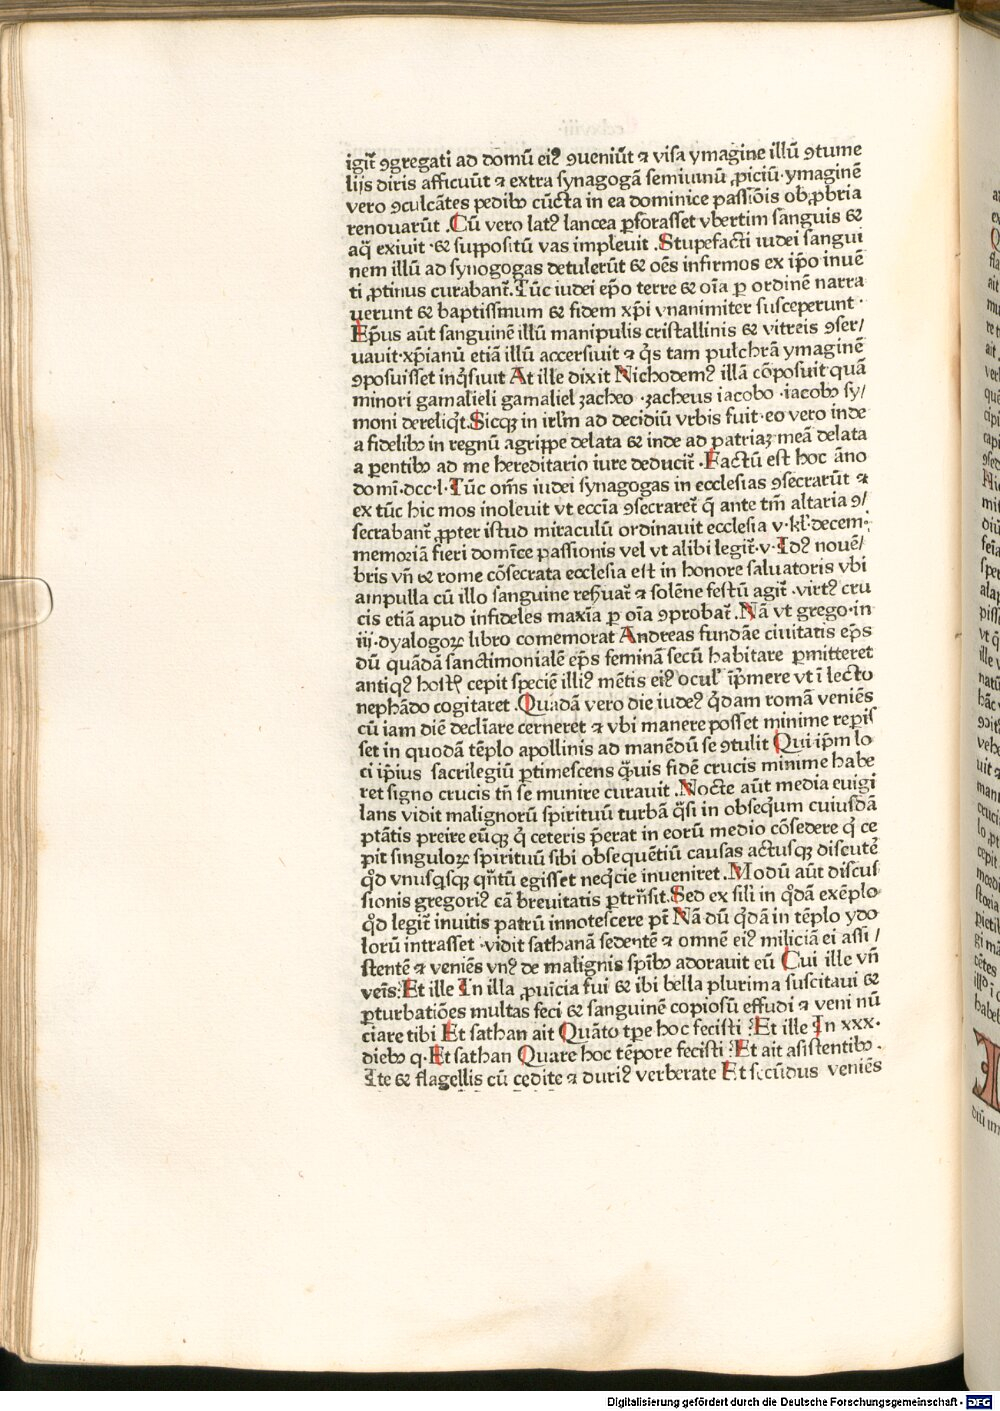 igit̃ ꝯgregati ad domũ eiꝰ ꝯueniũt ⁊ visa ymagine illũ ꝯtume
lijs diris afficuũt ⁊ extra synagogã semiuinũ ꝓiciũ·ymaginẽ
vero ꝯculcãtes pedibꝰ cũcta in ea dominice passiõis obꝓpbria
renouarũt .Cũ vero latꝰ lancea ꝑforasset vbertim sanguis &
aq̃ exiuit ·& suppositũ vas impleuit .Stupefacti iudei sangui
nem illũ ad synogogas detulerũt & oẽs infirmos ex ip̃o inuẽ
ti ꝓtinus curabant̃.Tũc iudei ep̃o terre & oĩa ꝑ ordinẽ narra
uerunt & baptissmum & fidem xp̃i vnanimiter susceperunt ·
Ep̃us aũt sanguinẽ illũ manipulis cristallinis & vitreis ꝯser/
uauit·xp̃ianũ etiã illũ accersiuit ⁊ q̃s tam pulchrã ymaginẽ
ꝯposuisset inq̃siuit At ille dixit Nichodemꝰ illã cõposuit quã
minori gamalieli gamaliel zacheo ·zacheus iacobo ·iacobꝰ sy/
moni dereliq̃t.Sicqꝫ in irl̃m ad decidiũ vrbis fuit·eo vero inde
a fidelibꝰ in regnũ agrippe delata & inde ad patriaꝫ meã delata
a ꝑentibꝰ ad me hereditario iure deducit̃ .Factũ est hoc ãno
domĩ·dcc·l·Tũc om̃s iudei synagogas in ecclesias ꝯsecrarũt ⁊
ex tũc hic mos inoleuit vt eccĩa ꝯsecraret̃ q̃ ante tm̃ altaria ꝯ/
secrabant̃ ꝓpter istud miraculũ ordinauit ecclesia v·kl̃·decem·
memoriã fieri domĩce passionis vel vt alibi legit̃·v·Idꝰ nouẽ/
bris vñ & rome cõsecrata ecclesia est in honore saluatoris vbi
ampulla cũ illo sanguine reẜuat̃ ⁊ solẽne festũ agit̃ ·virtꝰ cru
cis etiã apud infideles maxĩa ꝑ oĩa ꝯprobat̃.Nã vt grego·in
iij·dyalogoꝝ libro comemorat Andreas fundãe ciuitatis ep̃s
dũ quãdã sanctimonialẽ ep̃s feminã secũ habitare ꝑmitteret
antiqꝰ hostꝭ cepit speciẽ illiꝰ mẽtis eiꝰ ocul᷒ ip̃mere vt ĩ lecto
nephãdo cogitaret .Quadã vero die iudeꝰ q̃dam romã veniẽs
cũ iam diẽ declĩare cerneret ⁊ vbi manere posset minime reperis
set in quodã tẽplo apollinis ad manẽdũ se ꝯtulit Qui ip̃m lo
ci ip̃ius sacrilegiũ ꝑtimescens q̃uis fidẽ crucis minime habe
ret signo crucis tñ se munire curauit .Nocte aũt media euigi
lans vidit malignorũ spirituũ turbã q̃si in obseq̃um cuiusdã
ptãtis preire eũqꝫ q̃ ceteris p̃erat in eorũ medio cõsedere q̃ ce
pit singuloꝝ spirituũ sibi obsequẽtiũ causas actusqꝫ discutẽ
q̃d vnusqsqꝫ qñtũ egisset neq̃cie inueniret .Modũ aũt discus
sionis gregoriꝰ cã breuitatis ꝑtrñsit.Sed ex sili in q̃dã exẽplo
q̃d legit̃ inuitis patrũ innotescere pt̃ Nã dũ q̃dã in tẽplo ydo
lorũ intrasset ·vidit sathanã sedentẽ ⁊ omnẽ eiꝰ miliciã ei assi /
stentẽ ⁊ veniẽs vnꝰ de malignis spĩbꝰ adorauit eũ Cui ille vñ
veĩs:Et ille In illa ꝓuĩcia fui & ibi bella plurima suscitaui &
ꝑturbatiões multas feci & sanguinẽ copiosũ effudi ⁊ veni nũ
ciare tibi Et sathan ait Quãto tꝑe hoc fecisti :Et ille In xxx·
diebꝰ q·Et sathan Quare hoc tẽpore fecisti :Et ait asistentibꝰ .
Ite & flagellis cũ cedite ⁊ duriꝰ verberate Et secũdus veniẽs
Digitalisierung gefördert durch die Deutsche Forschungsgemeinschaft - DFG